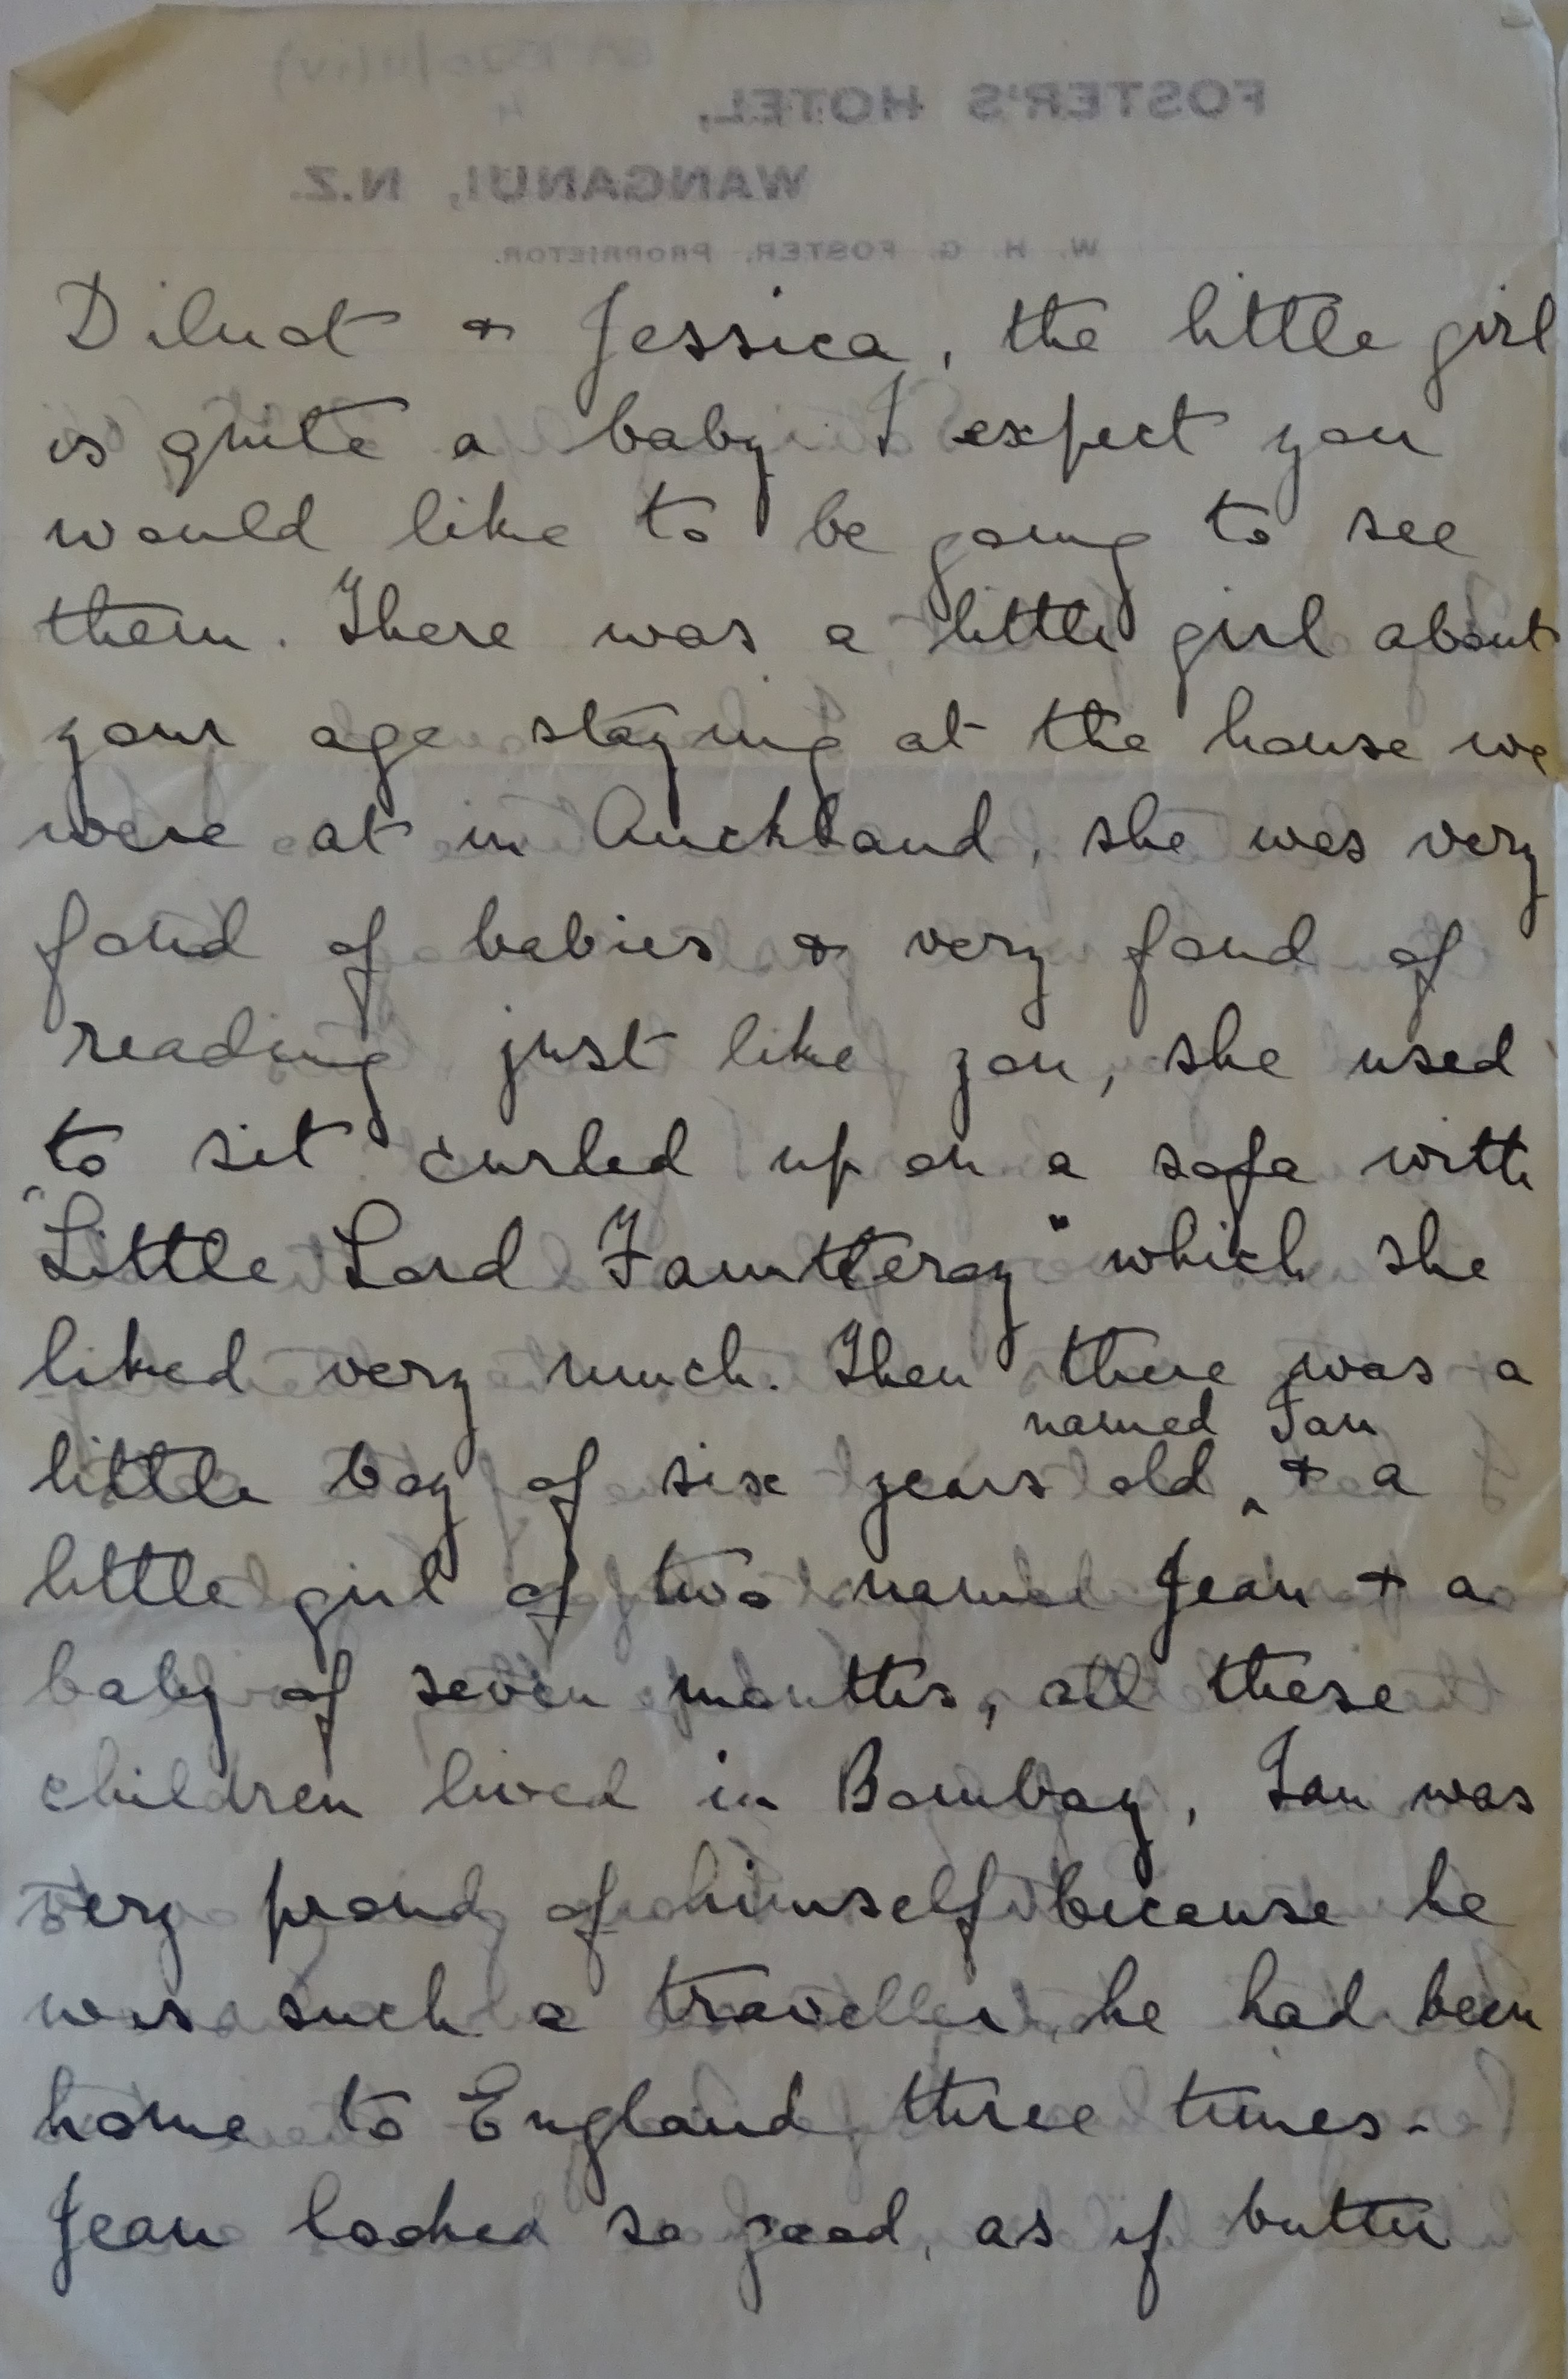 FOSTER'S HOTEL,
WANGANUI, N.Z.
W. H. G. FOSTER, PROPRIETOR.
Diluot & Jessica, the little girl
is quite a baby I expect you
would like to be going to see
them. There was a little girl about
your age staying at the house we
were at in Auckland, she was very
fond of babies & very fond of
reading just like you, she used
to sit curled up on a sofa with
"Little Lord Fauntteroy" which she
liked very much. Then there was a
named Ian
little boy of six years old ‸ & a
little girl of two named Jean & a
baby of seven months, all these
children lived in Bombay, Ian was
very proud of himself because he
was such a traveller, he had been
home to England three times.
Jean looked so good, as if butter